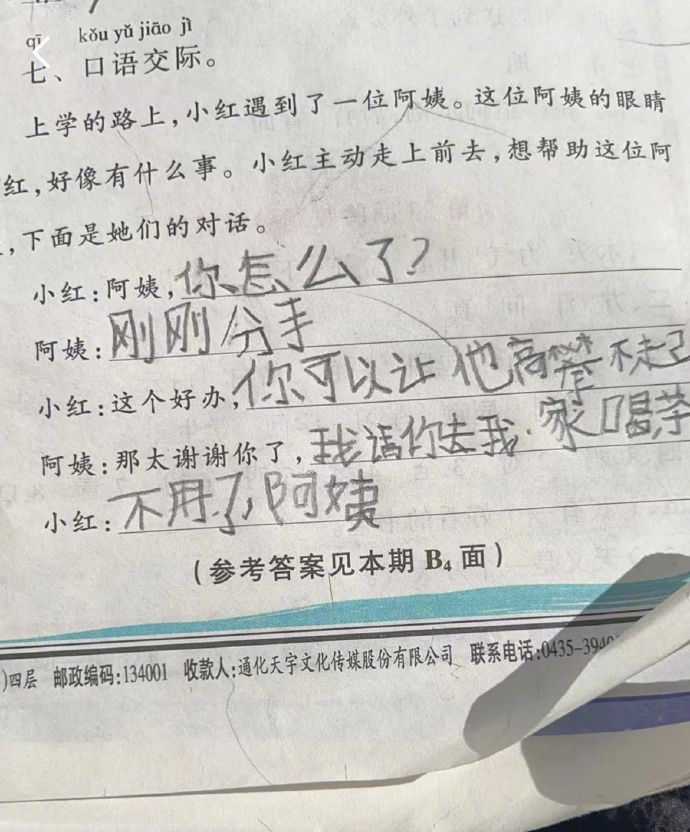 qī kǒu yǔ jiāo jì
七、口语交际。
上学的路上,小红遇到了一位阿姨。这位阿姨的眼睛
红,好像有什么事。小红主动走上前去,想帮助这位阿
,下面是她们的对话。
小红:阿姨,你怎么了?
阿姨:刚刚分手
小红:这个好办,你可以让他高攀不起
阿姨:那太谢谢你了,我请你去我家喝茶
小红:不用了,阿姨
(参考答案见本期 B₄ 面)
)四层 邮政编码:134001 收款人:通化天宇文化传媒股份有限公司 联系电话:0435-394